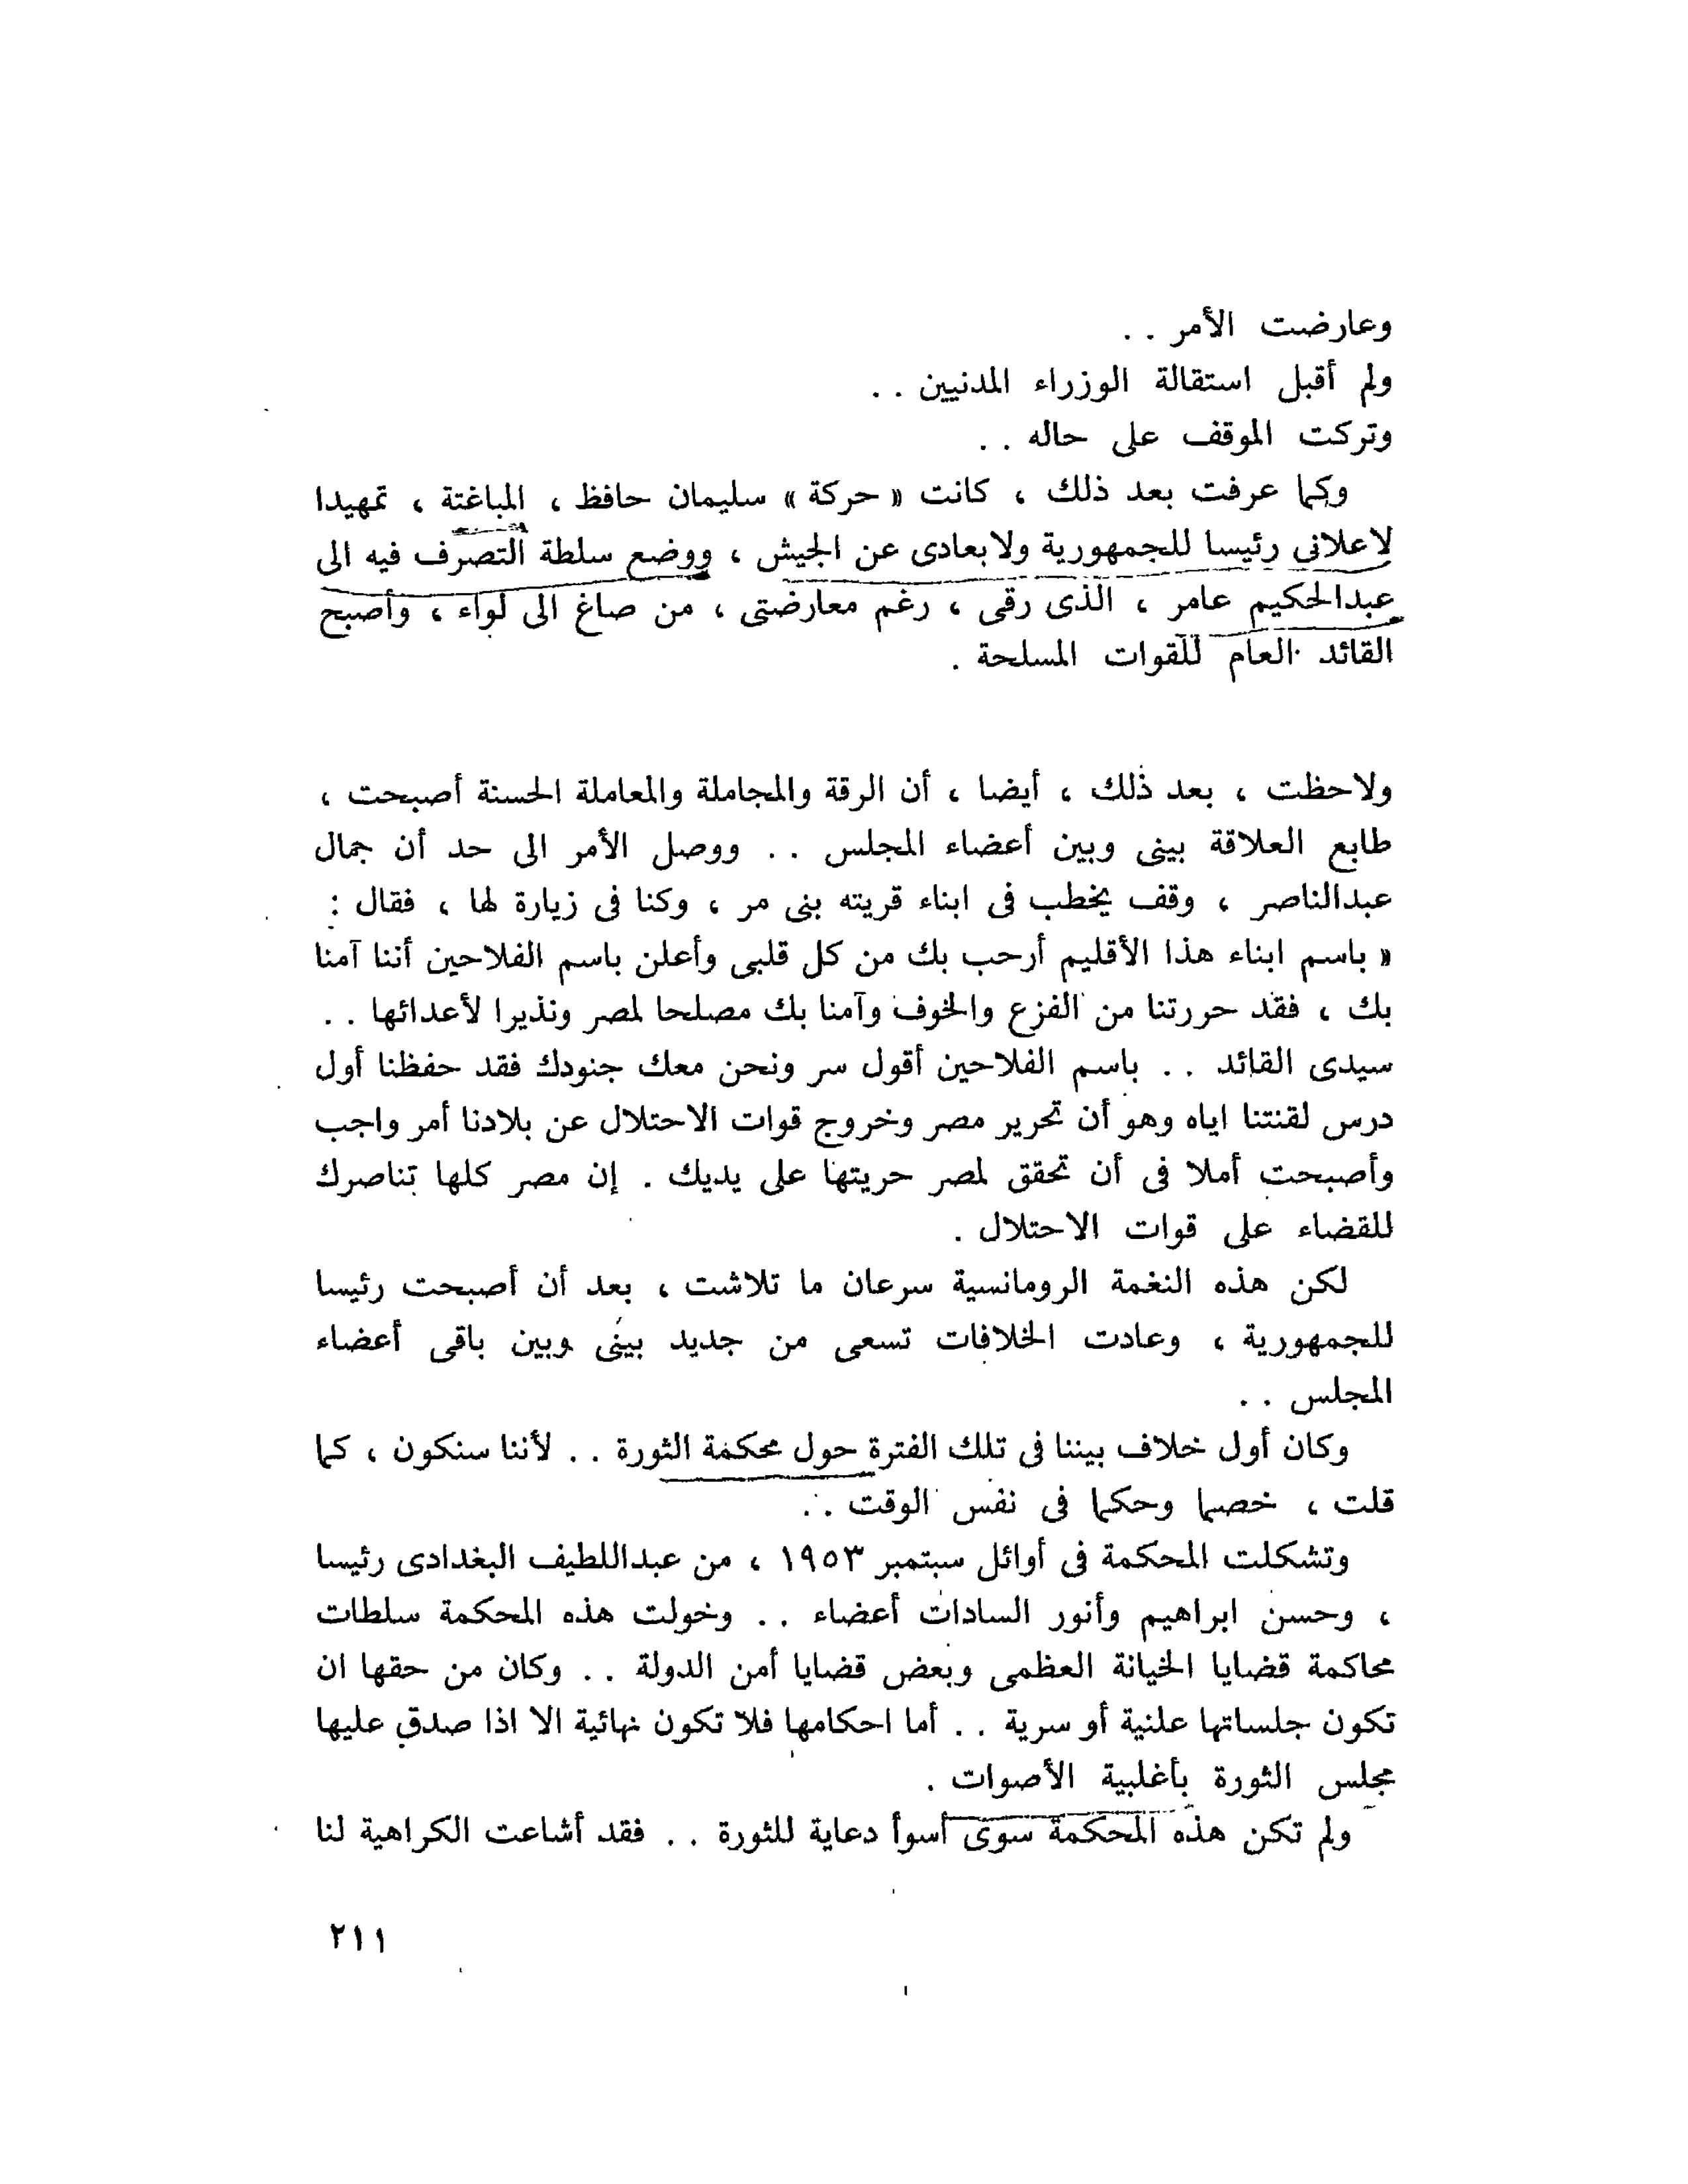 وعارضت الأمر . .
ولم أقبل استقالة الوزراء المدنيين . .
وتركت الموقف على حاله . .
وكما عرفت بعد ذلك ، كانت « حركة » سليمان حافظ ، المباغتة ، تمهيدا
لاعلانى رئيسا للجمهورية ولابعادى عن الجيش ، ووضع سلطة التصرف فيه الى
عبدالحكيم عامر ، الذى رقى ، رغم معارضتى ، من صاغ الى لواء ، وأصبح
القائد العام للقوات المسلحة .
ولاحظت ، بعد ذلك ، أيضا ، أن الرقة والمجاملة والمعاملة الحسنة أصبحت ،
طابع العلاقة بينى وبين أعضاء المجلس . . ووصل الأمر الى حد أن جمال
عبدالناصر ، وقف يخطب فى ابناء قريته بنى مر ، وكنا فى زيارة لها ، فقال :
« باسم ابناء هذا الأقليم أرحب بك من كل قلبى وأعلن باسم الفلاحين أننا آمنا
بك ، فقد حررتنا من الفزع والخوف وآمنا بك مصلحا لمصر ونذيرا لأعدائها . .
سيدى القائد . . باسم الفلاحين أقول سر ونحن معك جنودك فقد حفظنا أول
درس لقنتنا اياه وهو أن تحرير مصر وخروج قوات الاحتلال عن بلادنا أمر واجب
وأصبحت أملا فى أن تحقق لمصر حريتها على يديك . إن مصر كلها تناصرك
للقضاء على قوات الاحتلال .
لكن هذه النغمة الرومانسية سرعان ما تلاشت ، بعد أن أصبحت رئيسا
للجمهورية ، وعادت الخلافات تسعى من جديد بينى وبين باقى أعضاء
المجلس . .
وكان أول خلاف بيننا فى تلك الفترة حول محكمة الثورة . . لأننا سنكون ، كما
قلت ، خصما وحكما فى نفس الوقت . .
وتشكلت المحكمة فى أوائل سبتمبر ١٩٥٣ ، من عبداللطيف البغدادى رئيسا
، وحسن ابراهيم وأنور السادات أعضاء . . وخولت هذه المحكمة سلطات
محاكمة قضايا الخيانة العظمى وبعض قضايا أمن الدولة . . وكان من حقها ان
تكون جلساتها علنية أو سرية . . أما احكامها فلا تكون نهائية الا اذا صدق عليها
مجلس الثورة بأغلبية الأصوات .
ولم تكن هذه المحكمة سوى أسوأ دعاية للثورة . . فقد أشاعت الكراهية لنا
٢١١